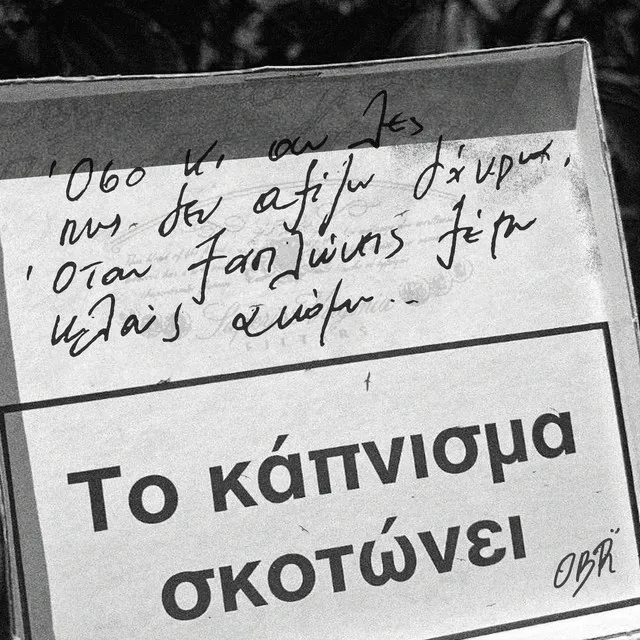 Όσο κι αν λες
πως δεν αξίζω δάκρυα,
Όταν ξαπλώνεις ξέρω
κλαις ακόμα..
FILTERS
Το κάπνισμα
σκοτώνει